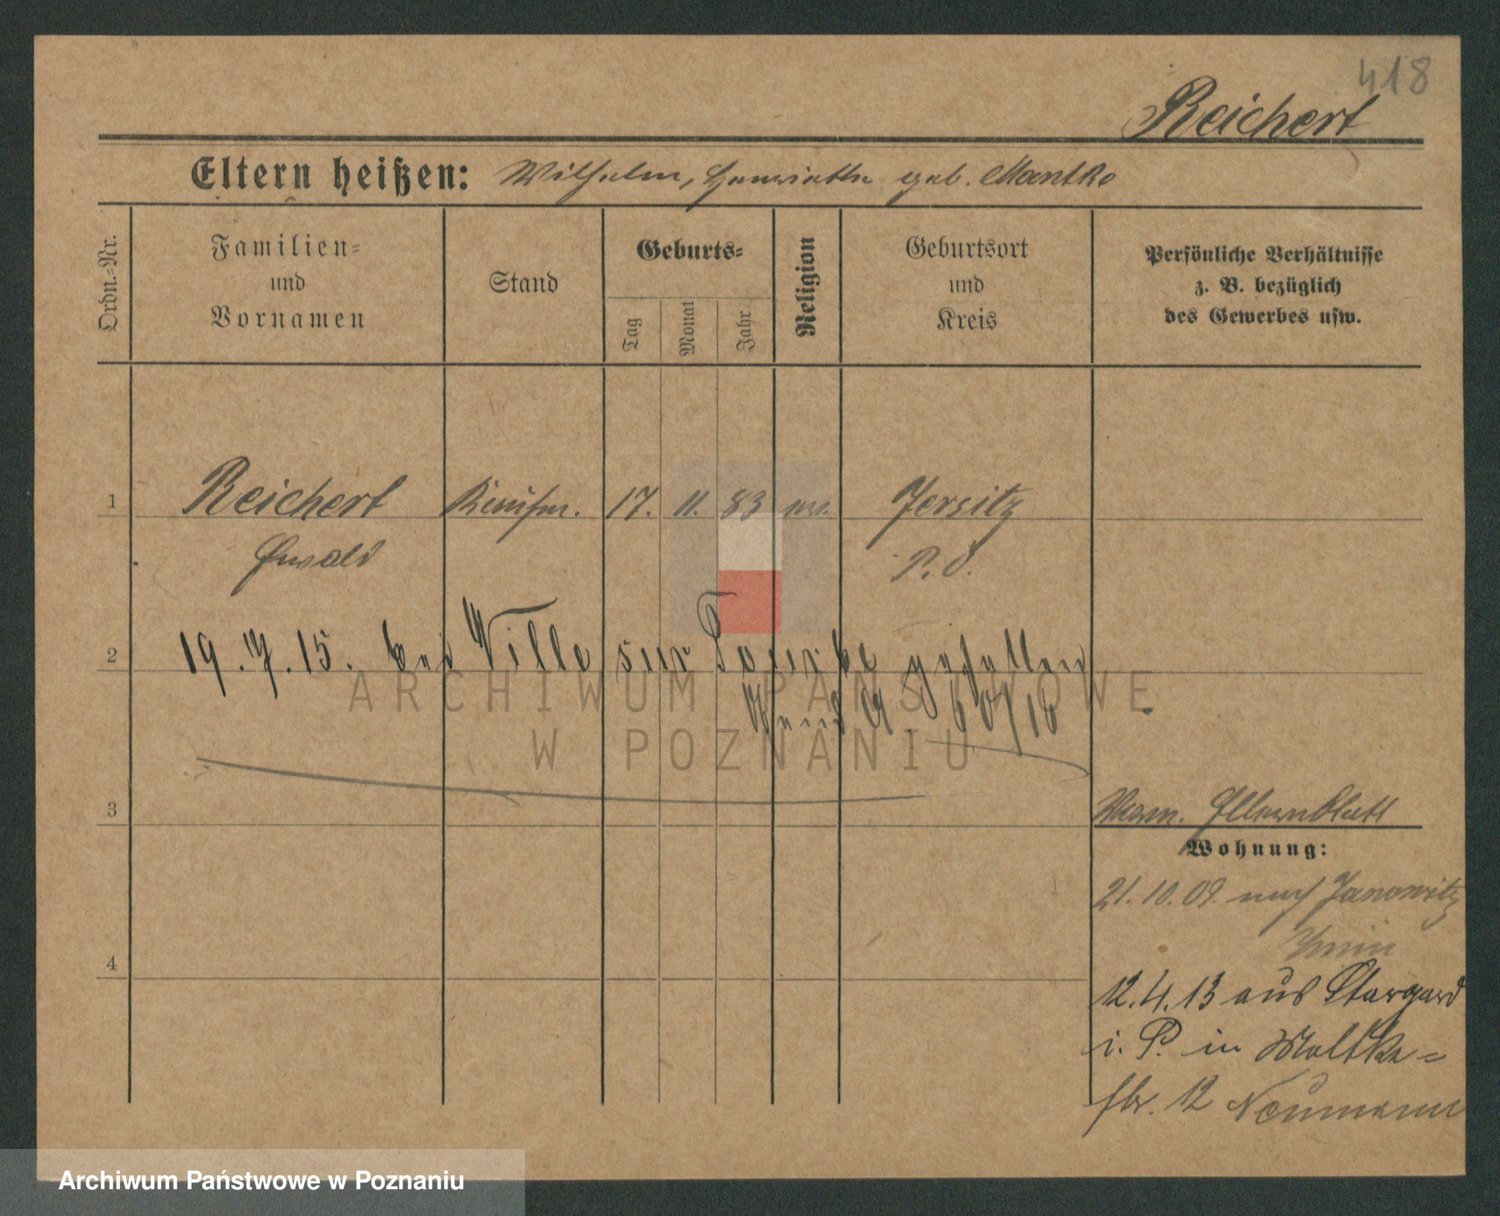 418
Reichert
Eltern heißen: Wilhelm, Henriette geb. Mantke
Ordn.-Nr.
Familien-
und
Vornamen
Stand
Geburts-
Tag
Monat
Jahr
Religion
Geburtsort
und
Kreis
Persönliche Verhältnisse
z. B. bezüglich
des Gewerbes usw.
1
Reichert Kaufm. 17. 11. 83 ev. Jersitz
Ewald P. O.
2
19. 7. 15. bei Ville sur Tourbe gefallen
60/16
ARCHIWUM PAŃSTWOWE
W POZNANIU
3
Verm. Elternblatt
Wohnung:
21. 10. 09. nach Janowitz
4
12. 4. 13 aus Stargard
i. P. in Moltke=
str. 12 Neumann
Archiwum Państwowe w Poznaniu